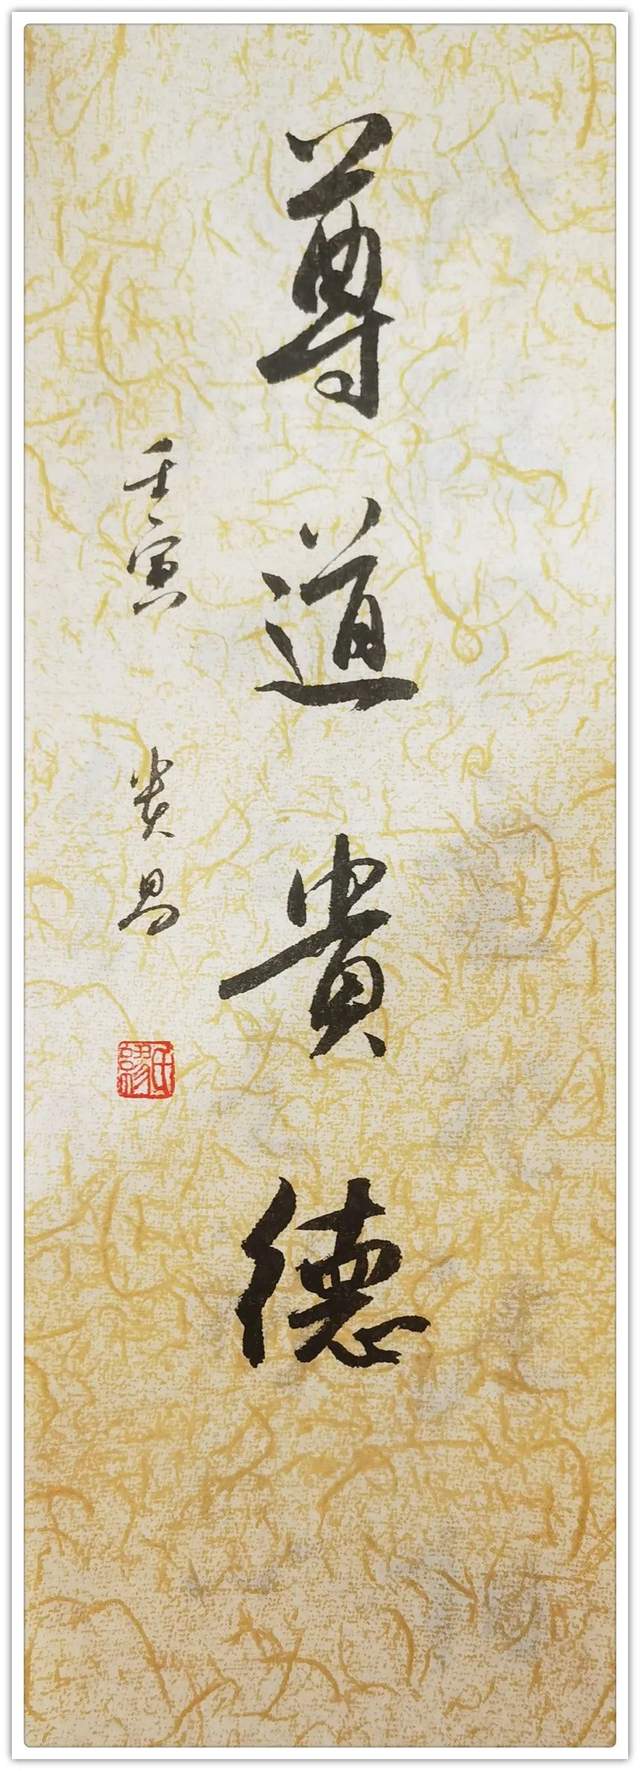 尊道貴德
壬寅 贵昌